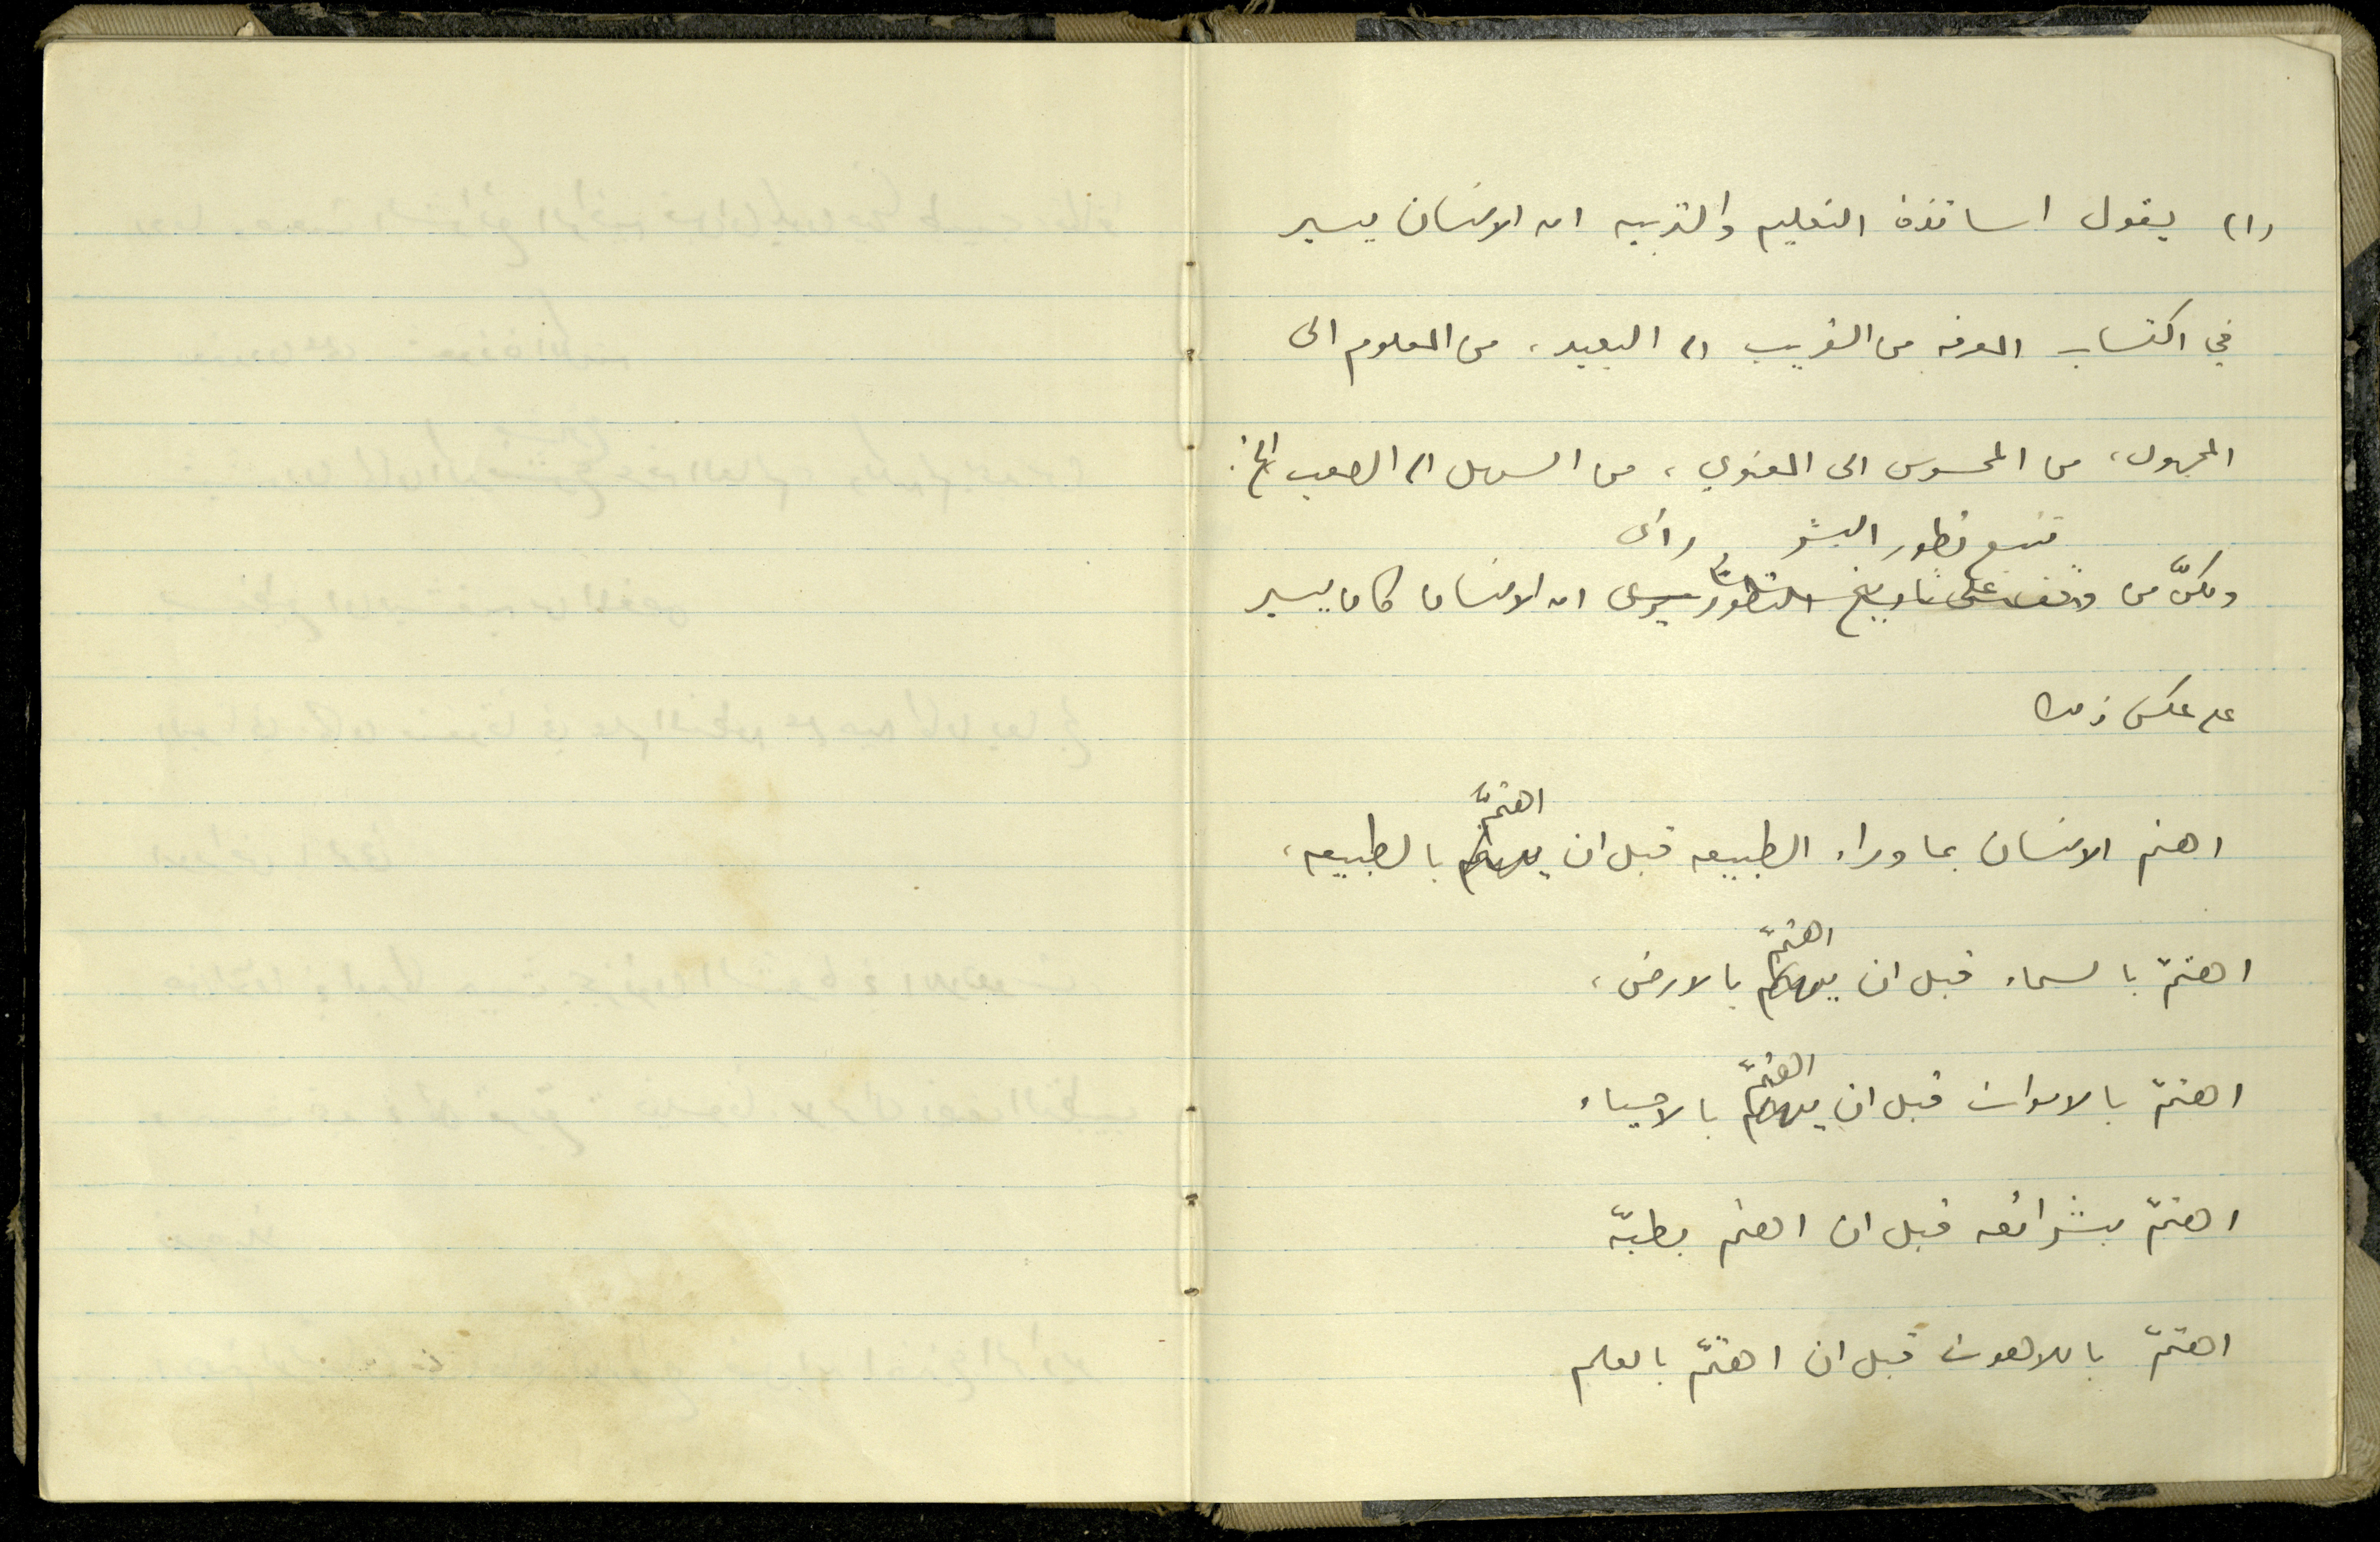 (١) يقول اساتذة التعليم والتربيه ان الانسان يسير
في اكتساب المعرفه من القريب الى البعيد، من المعلوم الى
المجهول، من المحسوس الى المعنوي، من السهل الى الصعب الخ.
تتبع تطور البشر رأى
ولكنّ من وقف على تاريخ التطور يرى ان الانسان كان يسير
على عكس ذلك
اهتم الانسان بما وراء الطبيعه قبل ان اهتمّ بالطبيعه،
اهتمّ بالسماء قبل ان اهتمّ بالارض،
اهتمّ بالاموات قبل ان اهتمّ بالاحياء
اهتمّ بشرائعه قبل ان اهتم بطبّه
اهتمّ باللاهوت قبل ان اهتمّ بالعلم